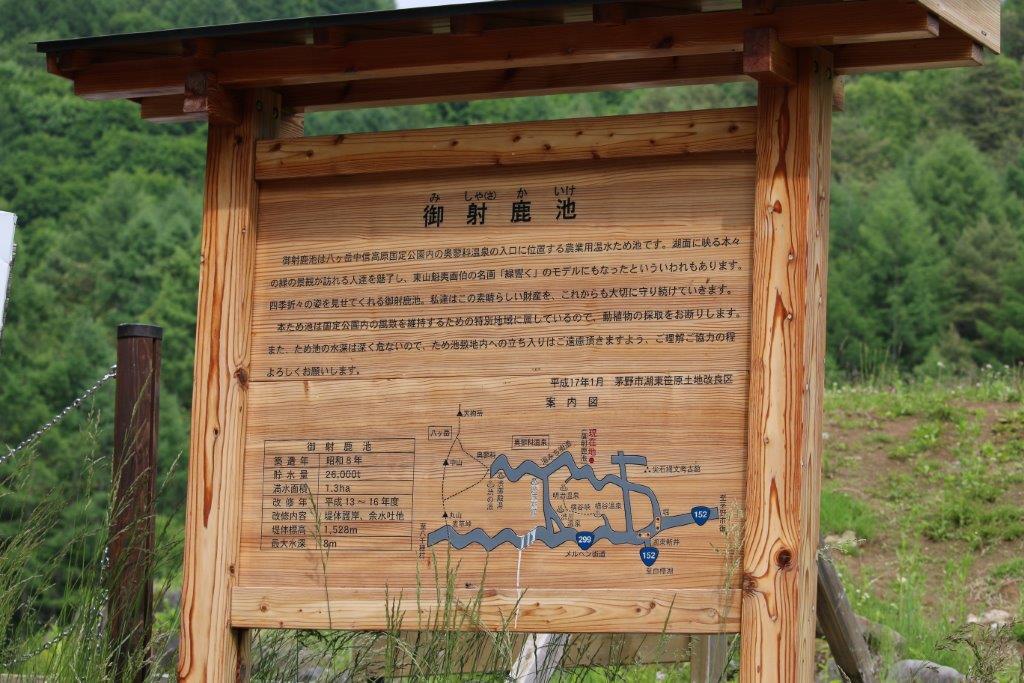 み しゃ(さ) か いけ
御射鹿池
御射鹿池は八ヶ岳中信高原国定公園内の奥蓼科温泉の入口に位置する農業用温水ため池です。湖面に映る木々
の緑の景観が訪れる人達を魅了し、東山魁夷画伯の名画「緑響く」のモデルにもなったといういわれもあります。
四季折々の姿を見せてくれる御射鹿池。私達はこの素晴らしい財産を、これからも大切に守り続けていきます。
本ため池は国定公園内の風致を維持するための特別地域に属しているので、動植物の採取をお断りします。
また、ため池の水深は深く危ないので、ため池敷地内への立ち入りはご遠慮頂きますよう、ご理解ご協力の程
よろしくお願いします。
平成17年1月 茅野市湖東笹原土地改良区
案内図
御射鹿池
築造年 昭和8年
貯水量 26,000t
満水面積 1.3ha
改修年 平成13～16年度
改修内容 堤体護岸、余水吐他
堤体標高 1,528m
最大水深 8m
天狗岳
八ヶ岳
中山
丸山
麦草峠
奥蓼科
奥蓼科温泉
渋の湯
現在地
御射鹿池
明治温泉
横谷峡
横谷温泉
尖石縄文考古館
堀
湖東新井
299
メルヘン街道
152
152
至茅野市街
至白樺湖